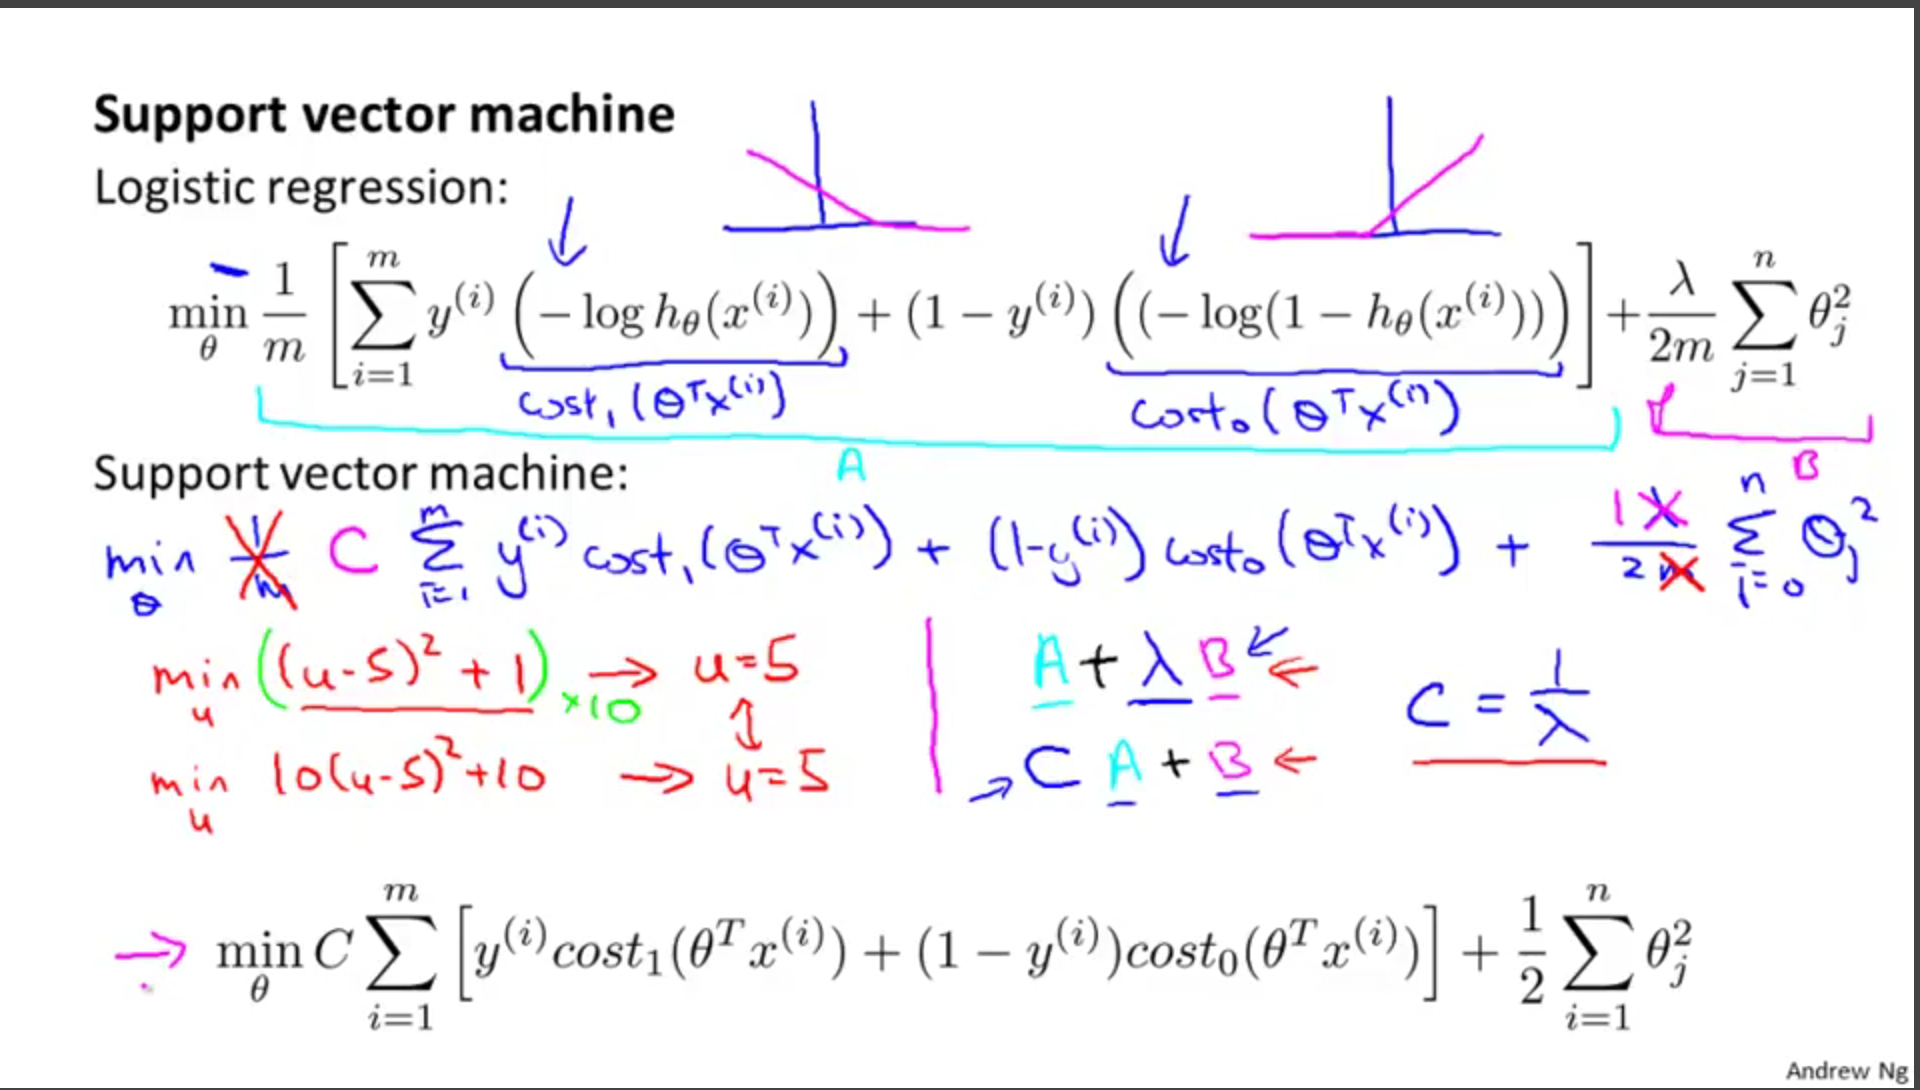 Support vector machine
Logistic regression:
min_θ 1/m [ ∑_{i=1}^{m} y^{(i)} (− log h_θ(x^{(i)})) + (1 − y^{(i)}) ((− log(1 − h_θ(x^{(i)}))) ] + λ/2m ∑_{j=1}^{n} θ_j^2
cost_1(θ^T x^{(i)}) cost_0(θ^T x^{(i)})
A B
Support vector machine:
min_θ 1/m C ∑_{i=1}^{m} y^{(i)} cost_1(θ^T x^{(i)}) + (1-y^{(i)}) cost_0(θ^T x^{(i)}) + 1 λ/2m ∑_{i=0}^{n} θ_j^2
min_u ((u-5)^2 + 1) ×10 → u=5
min_u 10(u-5)^2+10 → u=5
A + λ B ←
→ C A + B ←
C = 1/λ
→ min_θ C ∑_{i=1}^{m} [ y^{(i)} cost_1(θ^T x^{(i)}) + (1 − y^{(i)}) cost_0(θ^T x^{(i)}) ] + 1/2 ∑_{i=1}^{n} θ_j^2
Andrew Ng